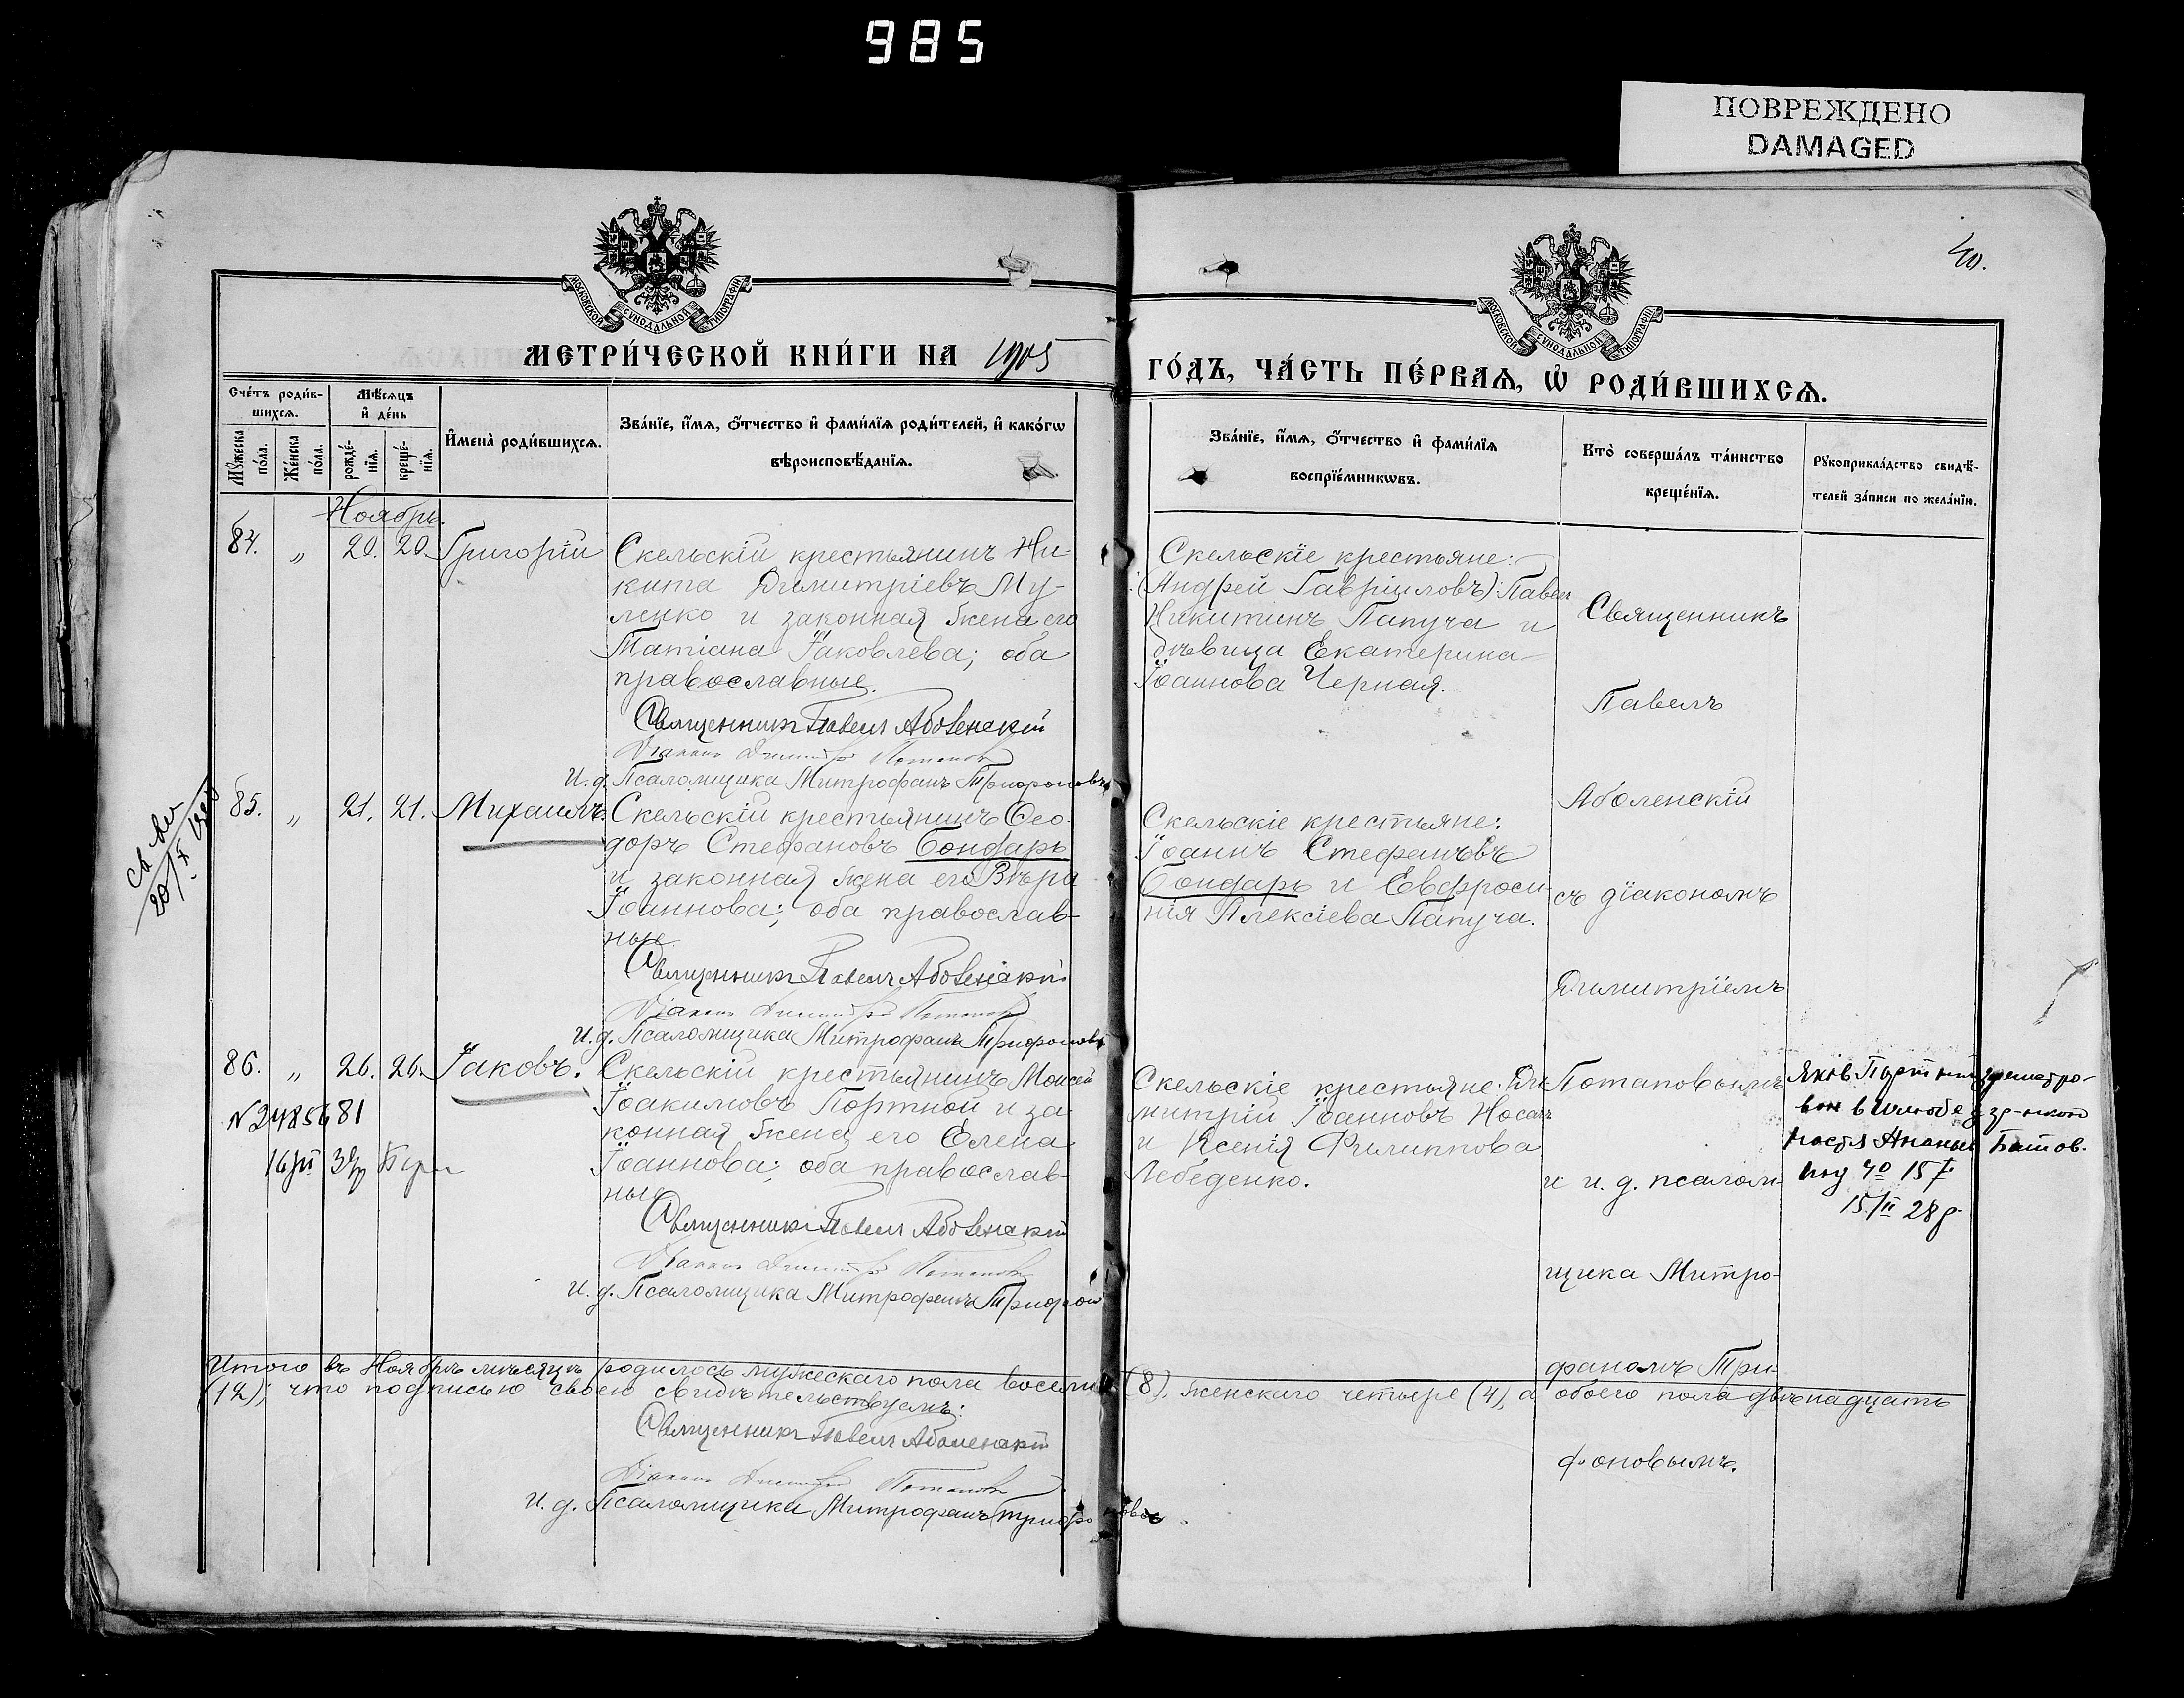 985
ПОВРЕЖДЕНО
DAMAGED
40.
МОСКОВСКОЙ СУНОДАЛЬНОЙ ТИПОГРАФІИ
МОСКОВСКОЙ СУНОДАЛЬНОЙ ТИПОГРАФІИ
МЕТРИ́ЧЕСКОЙ КНИ́ГИ НА 1905
ГО́ДЪ, ЧА́СТЬ ПЕ́РВАѦ, Ѡ҆ РОДИ́ВШИХСѦ.
Сче́тъ роди́в-
шихсѧ.
Мѣ́сѧцъ
и҆ де́нь
Мꙋ́жеска по́ла.
Же́нска по́ла.
рожде́-
нїѧ.
креще́-
нїѧ.
И҆мена̀ роди́вшихсѧ.
Зва́нїе, и҆́мѧ, ѻ҆́тчество и҆ фами́лїѧ роди́телей, и҆ како́гѡ
вѣроисповѣ́данїѧ.
Зва́нїе, и҆́мѧ, ѻ҆́тчество и҆ фами́лїѧ
воспрїе́мникѡвъ.
Кто̀ соверша́лъ та́инство
креще́нїѧ.
Рꙋкоприкла́дство свидѣ́-
телей за́писи по жела́нїю.
Ноябрь.
84. „ 20. 20. Григорій
Скельскій крестьянинъ Ни-
кита Димитріевъ Му-
ленко и законная жена его
Татіана Іаковлева; оба
православные.
Священникъ Павелъ Аболенскій
Діаконъ Димитрій Потаповъ
И. д. Псаломщика Митрофанъ Трифоновъ
Скельскіе крестьяне:
(Андрей Гавріиловъ): Павелъ
Никитинъ Папуча и
дѣвица Екатерина
Іоаннова Черная.
85. „ 21. 21. Михаилъ.
Скельскій крестьянинъ Ѳео-
доръ Стефановъ Бондарь
и законная жена его Вѣра
Іоаннова; оба православ-
ные.
Священникъ Павелъ Аболенскій
Діаконъ Димитрій Потаповъ
И. д. Псаломщика Митрофанъ Трифоновъ
Скельскіе крестьяне:
Іоаннъ Стефановъ
Бондарь и Евфроси-
нія Алексіева Папуча.
86. „ 26. 26. Іаковъ.
№ 2485681
Скельскій крестьянинъ Моисей
Іоакимовъ Портной и за-
конная жена его Елена
Іоаннова; оба православ-
ные.
Священникъ Павелъ Аболенскій
Діаконъ Димитрій Потаповъ
И. д. Псаломщика Митрофанъ Трифонов
Скельскіе крестьяне: Ди-
митрій Іоанновъ Носачъ
и Ксенія Филиппова
Лебеденко.
Священникъ
Павелъ
Аболенскій
съ діакономъ
Димитріемъ
Потаповымъ
и и. д. псалом-
щика Митро-
фаномъ Три-
фоновымъ.
15/II 28 р.
Итого въ Ноябрѣ мѣсяцѣ родилось мужескаго пола восемь (8). женскаго четыре (4), а обоего пола двѣнадцать
(12); что подписью своею свидѣтельствуемъ:
Священникъ Павелъ Аболенскій
Діаконъ Димитрій Потаповъ
И. д. Псаломщика Митрофанъ Трифоновъ